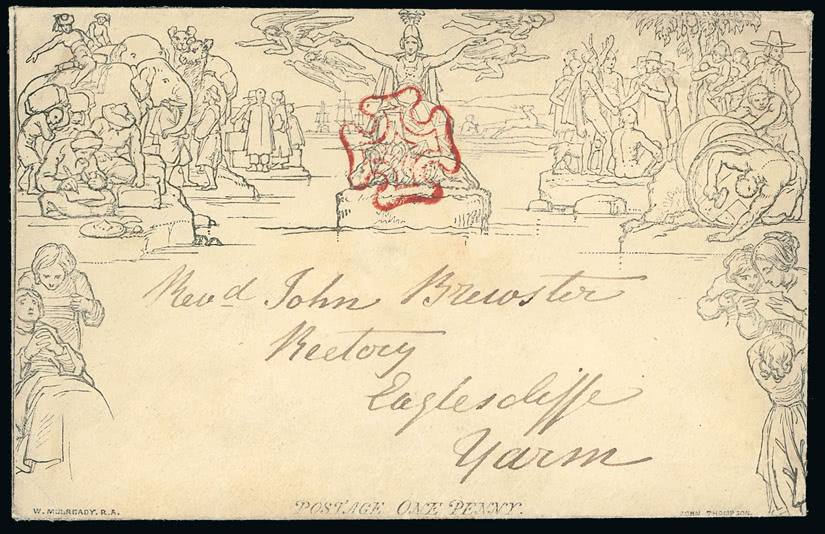 Revd John Brewster
Rectory
Eaglescliffe
Yarm
W. MULREADY. R.A.
POSTAGE ONE PENNY.
JOHN THOMPSON.